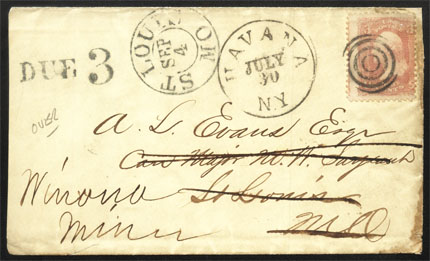 DUE 3
ST LOUIS MO
SEP
4
HAVANA
JULY
30
N.Y.
OVER
A. L. Evans Esqr
Care Major W. W. Sargent
Winona St Louis
Minn MO